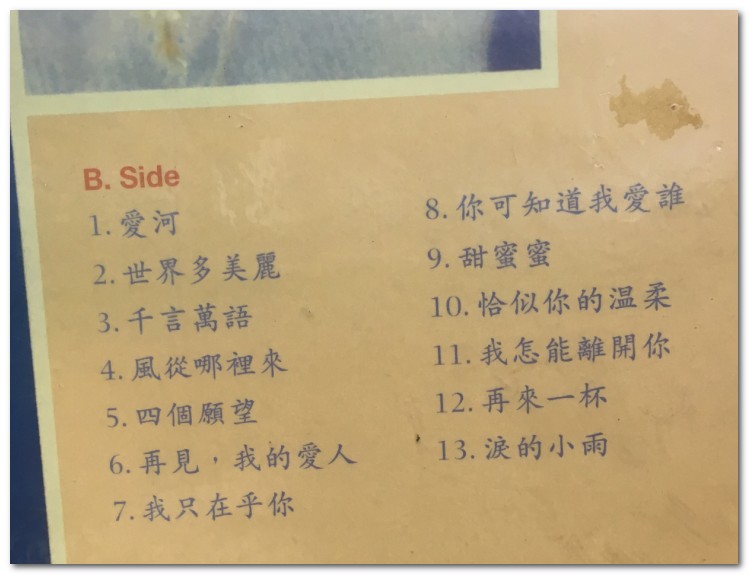 B. Side
1. 愛河
2. 世界多美麗
3. 千言萬語
4. 風從哪裡來
5. 四個願望
6. 再見，我的愛人
7. 我只在乎你
8. 你可知道我愛誰
9. 甜蜜蜜
10. 恰似你的温柔
11. 我怎能離開你
12. 再來一杯
13. 淚的小雨